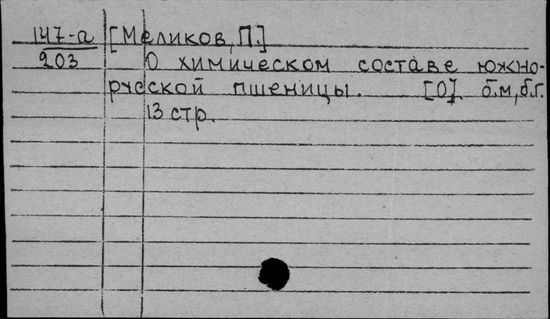 147-а [Меликов, П.]
203 О химическом составе южно-
русской пшеницы. [О]. б.м, б.г.
13 стр.